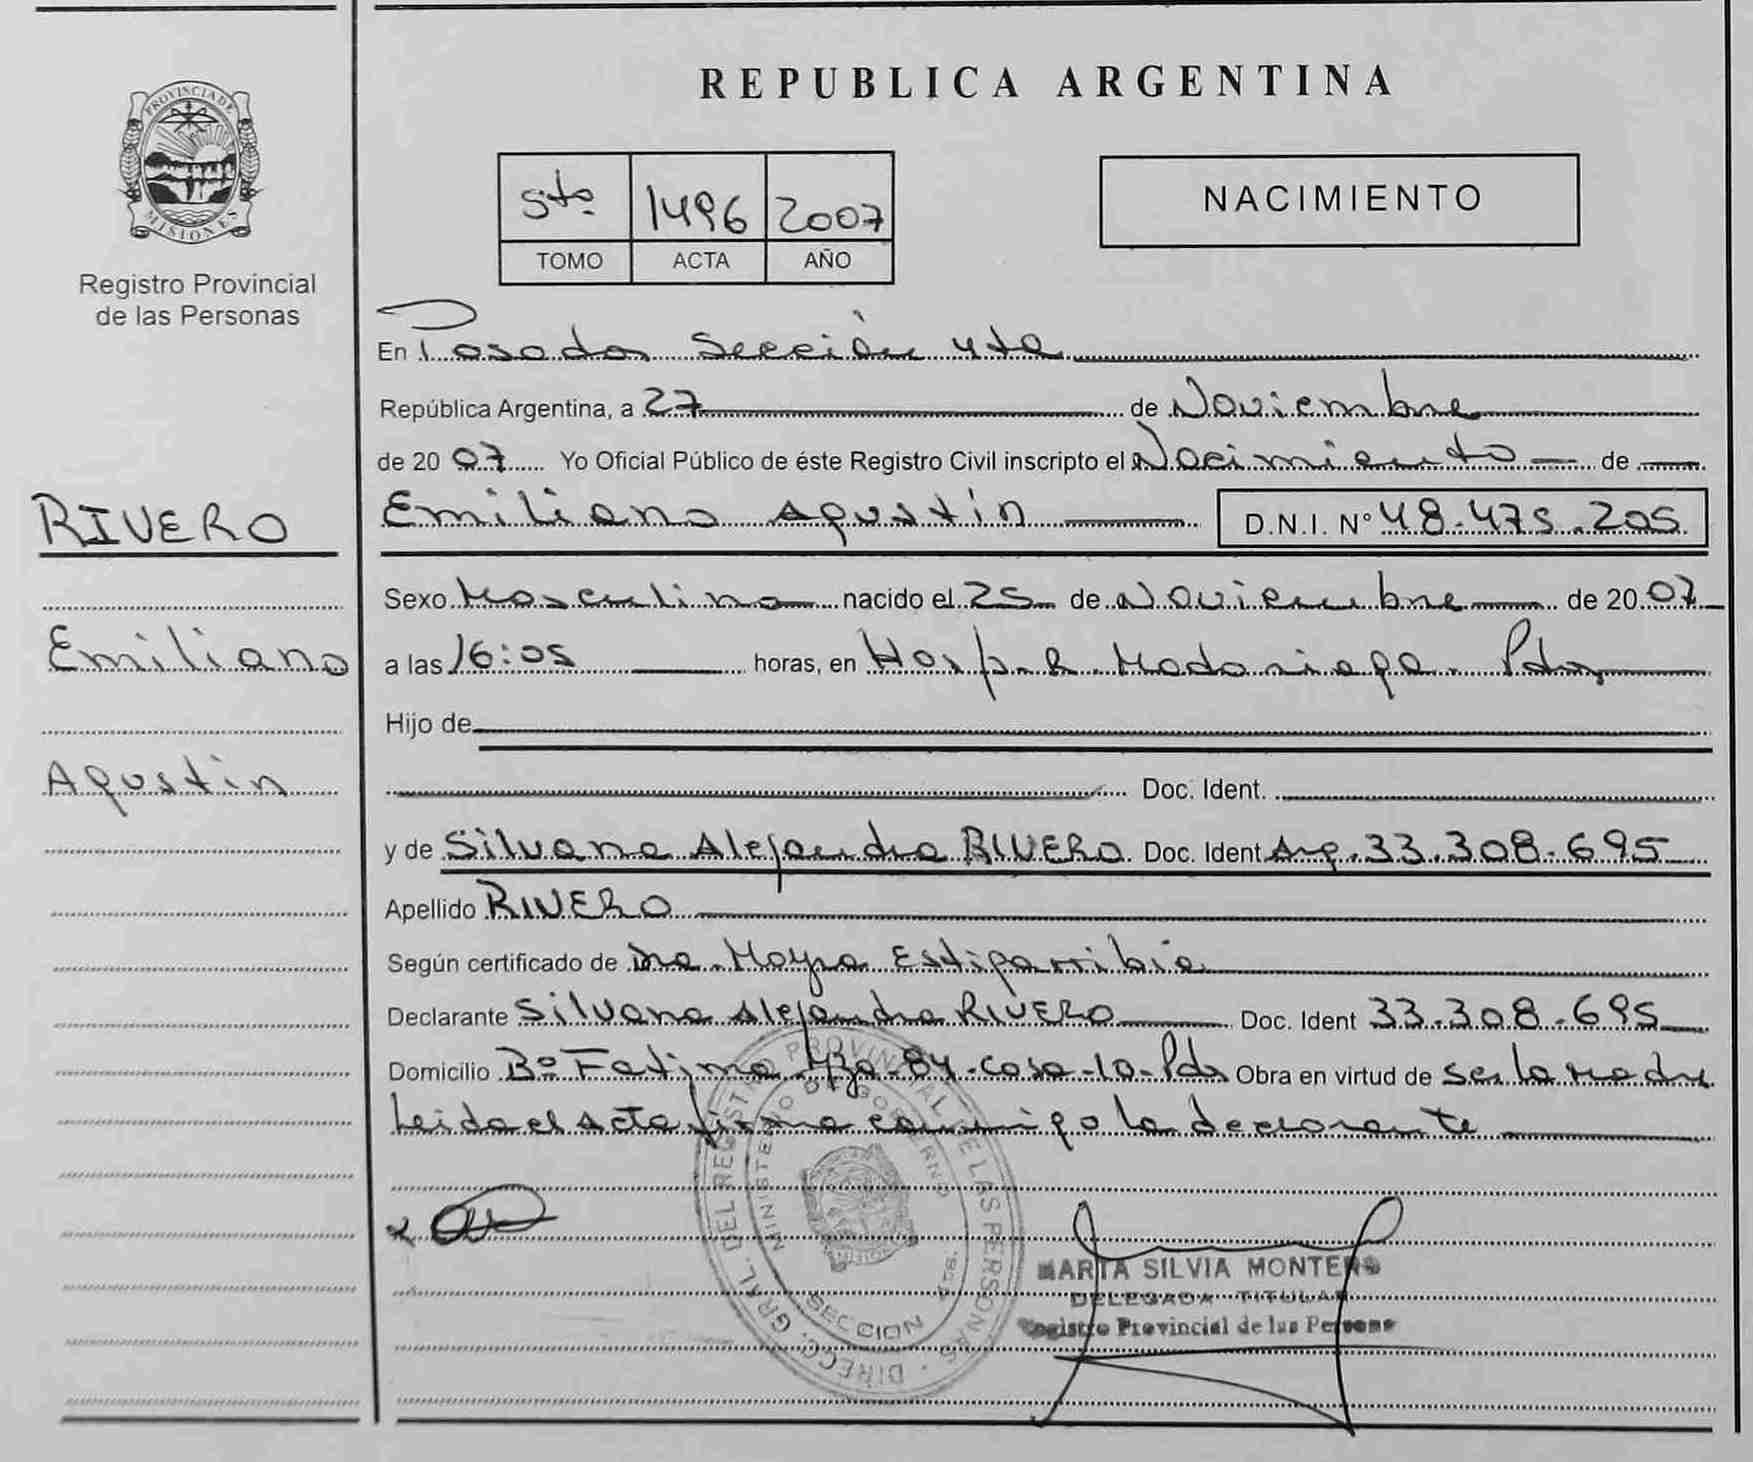 REPUBLICA ARGENTINA
PROVINCIA DE
MISIONES
Registro Provincial
de las Personas
5to 1496 2007
TOMO ACTA AÑO
NACIMIENTO
En Posadas Sección 4ta
República Argentina, a 27 de Noviembre
de 2007 Yo Oficial Público de éste Registro Civil inscripto el Nacimiento de
RIVERO
Emiliano Agustín D.N.I. Nº 48.475.205
Sexo Masculino nacido el 25 de Noviembre de 2007
Emiliano
a las 16:05 horas, en Hosp. R. Madariaga. Pdas
Hijo de
Agustín
Doc. Ident.
y de Silvana Alejandra RIVERO Doc. Ident Arg. 33.308.695
Apellido RIVERO
Según certificado de Dra. Mayra Estigarribia
Declarante Silvana Alejandra RIVERO Doc. Ident 33.308.695
Domicilio Bº Fatima Mza. 84 casa 10 Pdas Obra en virtud de ser la madre
Leida el Acta firma conmigo la declarante
DIRECC. GRAL. DEL REGISTRO PROVINCIAL DE LAS PERSONAS
MINISTERIO DE GOBIERNO
SECCION 4ta.
MARTA SILVIA MONTERO
DELEGADA TITULAR
Registro Provincial de las Personas